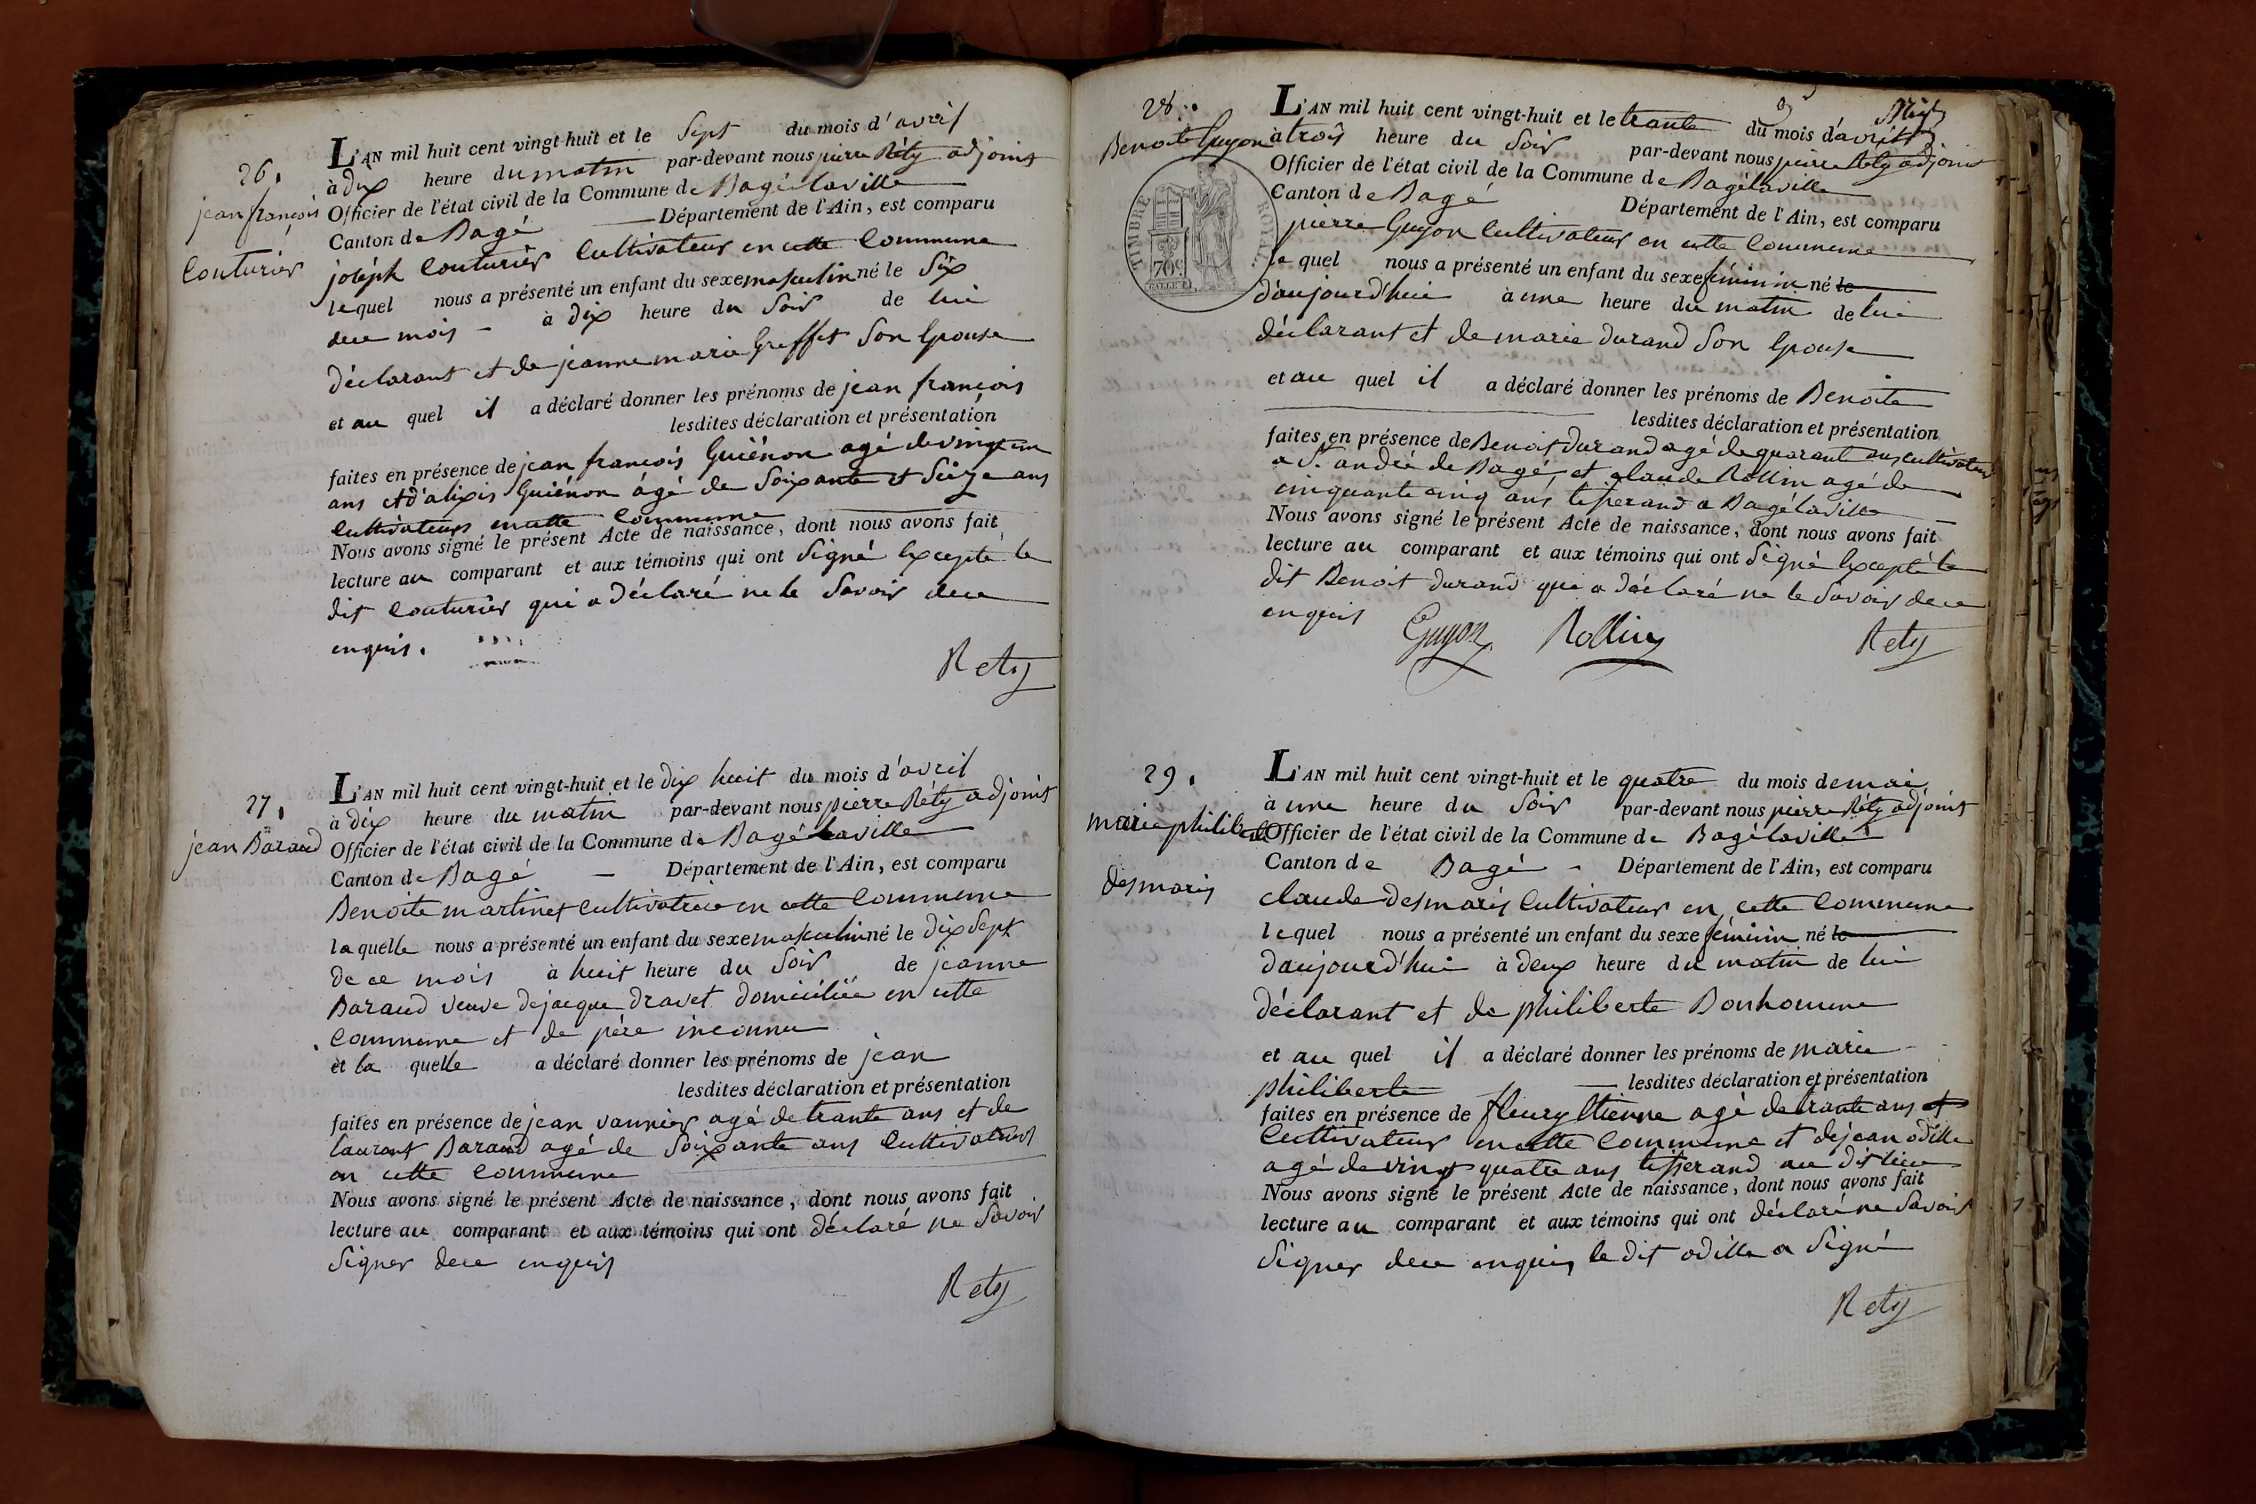 26.
jean françois
Couturier
L'AN mil huit cent vingt-huit et le Sept du mois d'avril
à dix heure du matin par-devant nous pierre Réty adjoint
Officier de l'état civil de la Commune de Bagé laville
Canton de Bagé Département de l'Ain, est comparu
joseph Couturier Cultivateur en cette Commune
lequel nous a présenté un enfant du sexe masculin né le Six
dece mois à dix heure du Soir de lui
déclarant et de jeanne marie Greffet Son Epouse
et au quel il a déclaré donner les prénoms de jean françois
lesdites déclaration et présentation
faites en présence de jean françois Guiénon agé de vingt un
ans et d'alixis Guiénon agé de Soixante et Seize ans
Cultivateurs en cette Commune
Nous avons signé le présent Acte de naissance, dont nous avons fait
lecture au comparant et aux témoins qui ont Signé Excepté le
dit Couturier qui a déclaré ne le Savoir dece
enquis.
Rety
27.
jean Baraud
L'AN mil huit cent vingt-huit et le dix huit du mois d'avril
à dix heure du matin par-devant nous pierre Réty adjoint
Officier de l'état civil de la Commune de Bagé laville
Canton de Bagé Département de l'Ain, est comparu
Benoite martinet Cultivatrice en cette Commune
laquelle nous a présenté un enfant du sexe masculin né le dix Sept
de ce mois à huit heure du Soir de jeanne
Baraud veuve de jacque dravet domiciliée en cette
Commune et de père inconnu
et la quelle a déclaré donner les prénoms de jean
lesdites déclaration et présentation
faites en présence de jean vannier agé de trante ans et de
laurent Baraud agé de Soixante ans Cultivateurs
en cette Commune
Nous avons signé le présent Acte de naissance, dont nous avons fait
lecture au comparant et aux témoins qui ont déclaré ne Savoir
Signer dece enquis
Rety
28.
Benoite Guyon
L'AN mil huit cent vingt-huit et le trante du mois d'avril
à trois heure du Soir par-devant nous pierre Réty adjoint
Officier de l'état civil de la Commune de Bagé laville
Canton de Bagé Département de l'Ain, est comparu
TIMBRE ROYAL
70c
pierre Guyon Cultivateur en cette Commune
le quel nous a présenté un enfant du sexe féminin né le
d'aujourd'hui à une heure du matin de lui
déclarant et de marie durand Son Epouse
et au quel il a déclaré donner les prénoms de Benoite
lesdites déclaration et présentation
faites en présence de Benoit durand agé de quarant ans Cultivateur
a St. andré de Bagé et claude Rollin agé de
cinquante cinq ans tisserand a Bagé laville
Nous avons signé le présent Acte de naissance, dont nous avons fait
lecture au comparant et aux témoins qui ont Signé Excepté le
dit Benoit durand qui a déclaré ne le Savoir dece
enquis
Guyon Rollin Rety
29.
marie philiberte
desmaris
L'AN mil huit cent vingt-huit et le quatre du mois de mai
à une heure du Soir par-devant nous pierre Réty adjoint
Officier de l'état civil de la Commune de Bagé laville
Canton de Bagé Département de l'Ain, est comparu
claude desmaris Cultivateur en cette Commune
lequel nous a présenté un enfant du sexe féminin né le
daujourd'hui à deux heure du matin de lui
déclarant et de philiberte Bonhomme
et au quel il a déclaré donner les prénoms de marie
philiberte lesdites déclaration et présentation
faites en présence de fleury Etienne agé de trante ans et
Cultivateur en cette Commune et de jean odille
agé de vingt quatre ans tisserand au dit lieu
Nous avons signé le présent Acte de naissance, dont nous avons fait
lecture au comparant et aux témoins qui ont déclaré ne Savoir
Signer dece enquis le dit odille a Signé
Rety